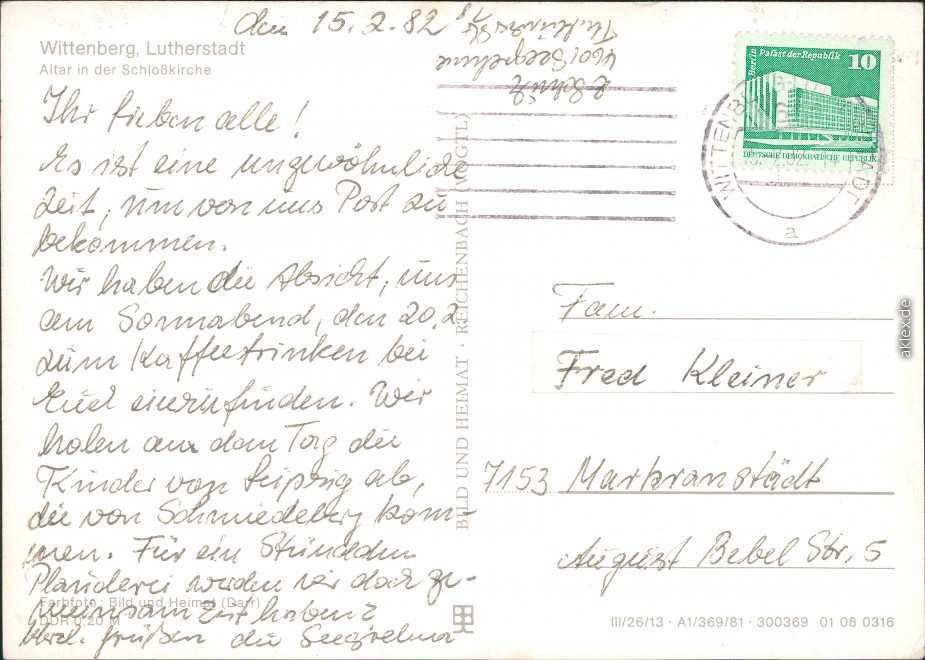 den 15.2.82
Wittenberg, Lutherstadt
Altar in der Schloßkirche
Ihr Lieben alle!
Es ist eine ungewöhnliche
Zeit, um von uns Post zu
bekommen.
Wir haben die Absicht, uns
am Sonnabend, den 20.2.
zum Kaffeetrinken bei
Euch einzufinden. Wir
holen an dem Tag die
Kinder von Leipzig ab,
die von Schmiedeberg kom-
men. Für ein Stündchen
Plauderei werden wir doch ge-
meinsam Zeit haben?
Herzl. grüßen die Seegrehna
Farbfoto: Bild und Heimat (Darr)
DDR 0,20 M
4601 Seegrehna
BILD UND HEIMAT · REICHENBACH (VOGTL)
Berlin Palast der Republik 10
DEUTSCHE DEMOKRATISCHE REPUBLIK
WITTENBERG
a
Fam.
Fred Kleiner
7153 Markranstädt
August Bebel Str. 5
III/26/13 · A1/369/81 · 300369 01 08 0316
aklex.de